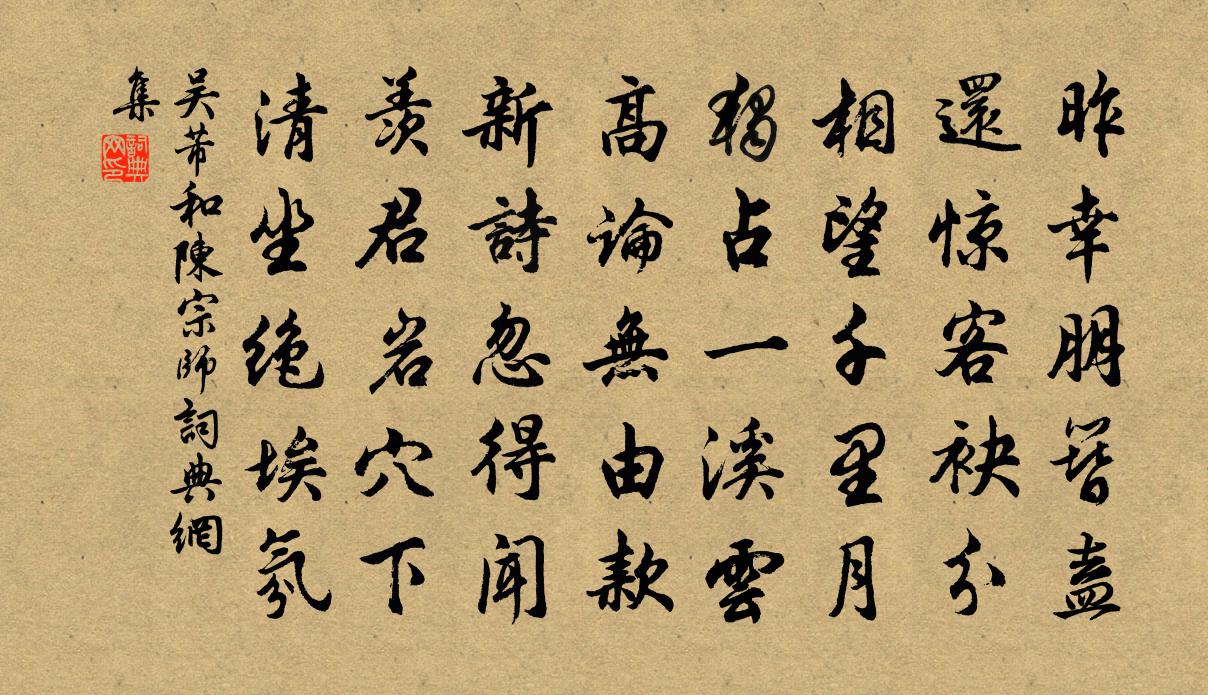 昨幸朋簪盍
還惊客袂分
相望千里月
獨占一溪雲
高論無由款
新詩忽得聞
羨君岩穴下
清坐绝埃氛
吴芾和陳宗師詞典網
集
詞典
网印